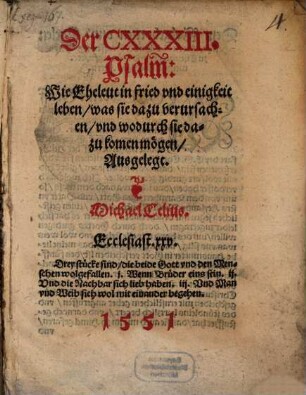 Der CXXXIII.
Psalm:
Wie Eheleut in fried vnd einigkeit
leben / was sie dazu verursach-
en / vnd wodurch sie da-
zu komen mögen /
Ausgelegt.
Michael Celius.
Ecclesiast. xxv.
Drey stücke sind / die beide Gott vnd den Men-
schen wolgefallen. j. Wenn Brüder eins sein. ij.
Vnd die Nachbar sich lieb haben. iij. Vnd Man
vnd Weib sich wol mit einander begehen.
1551